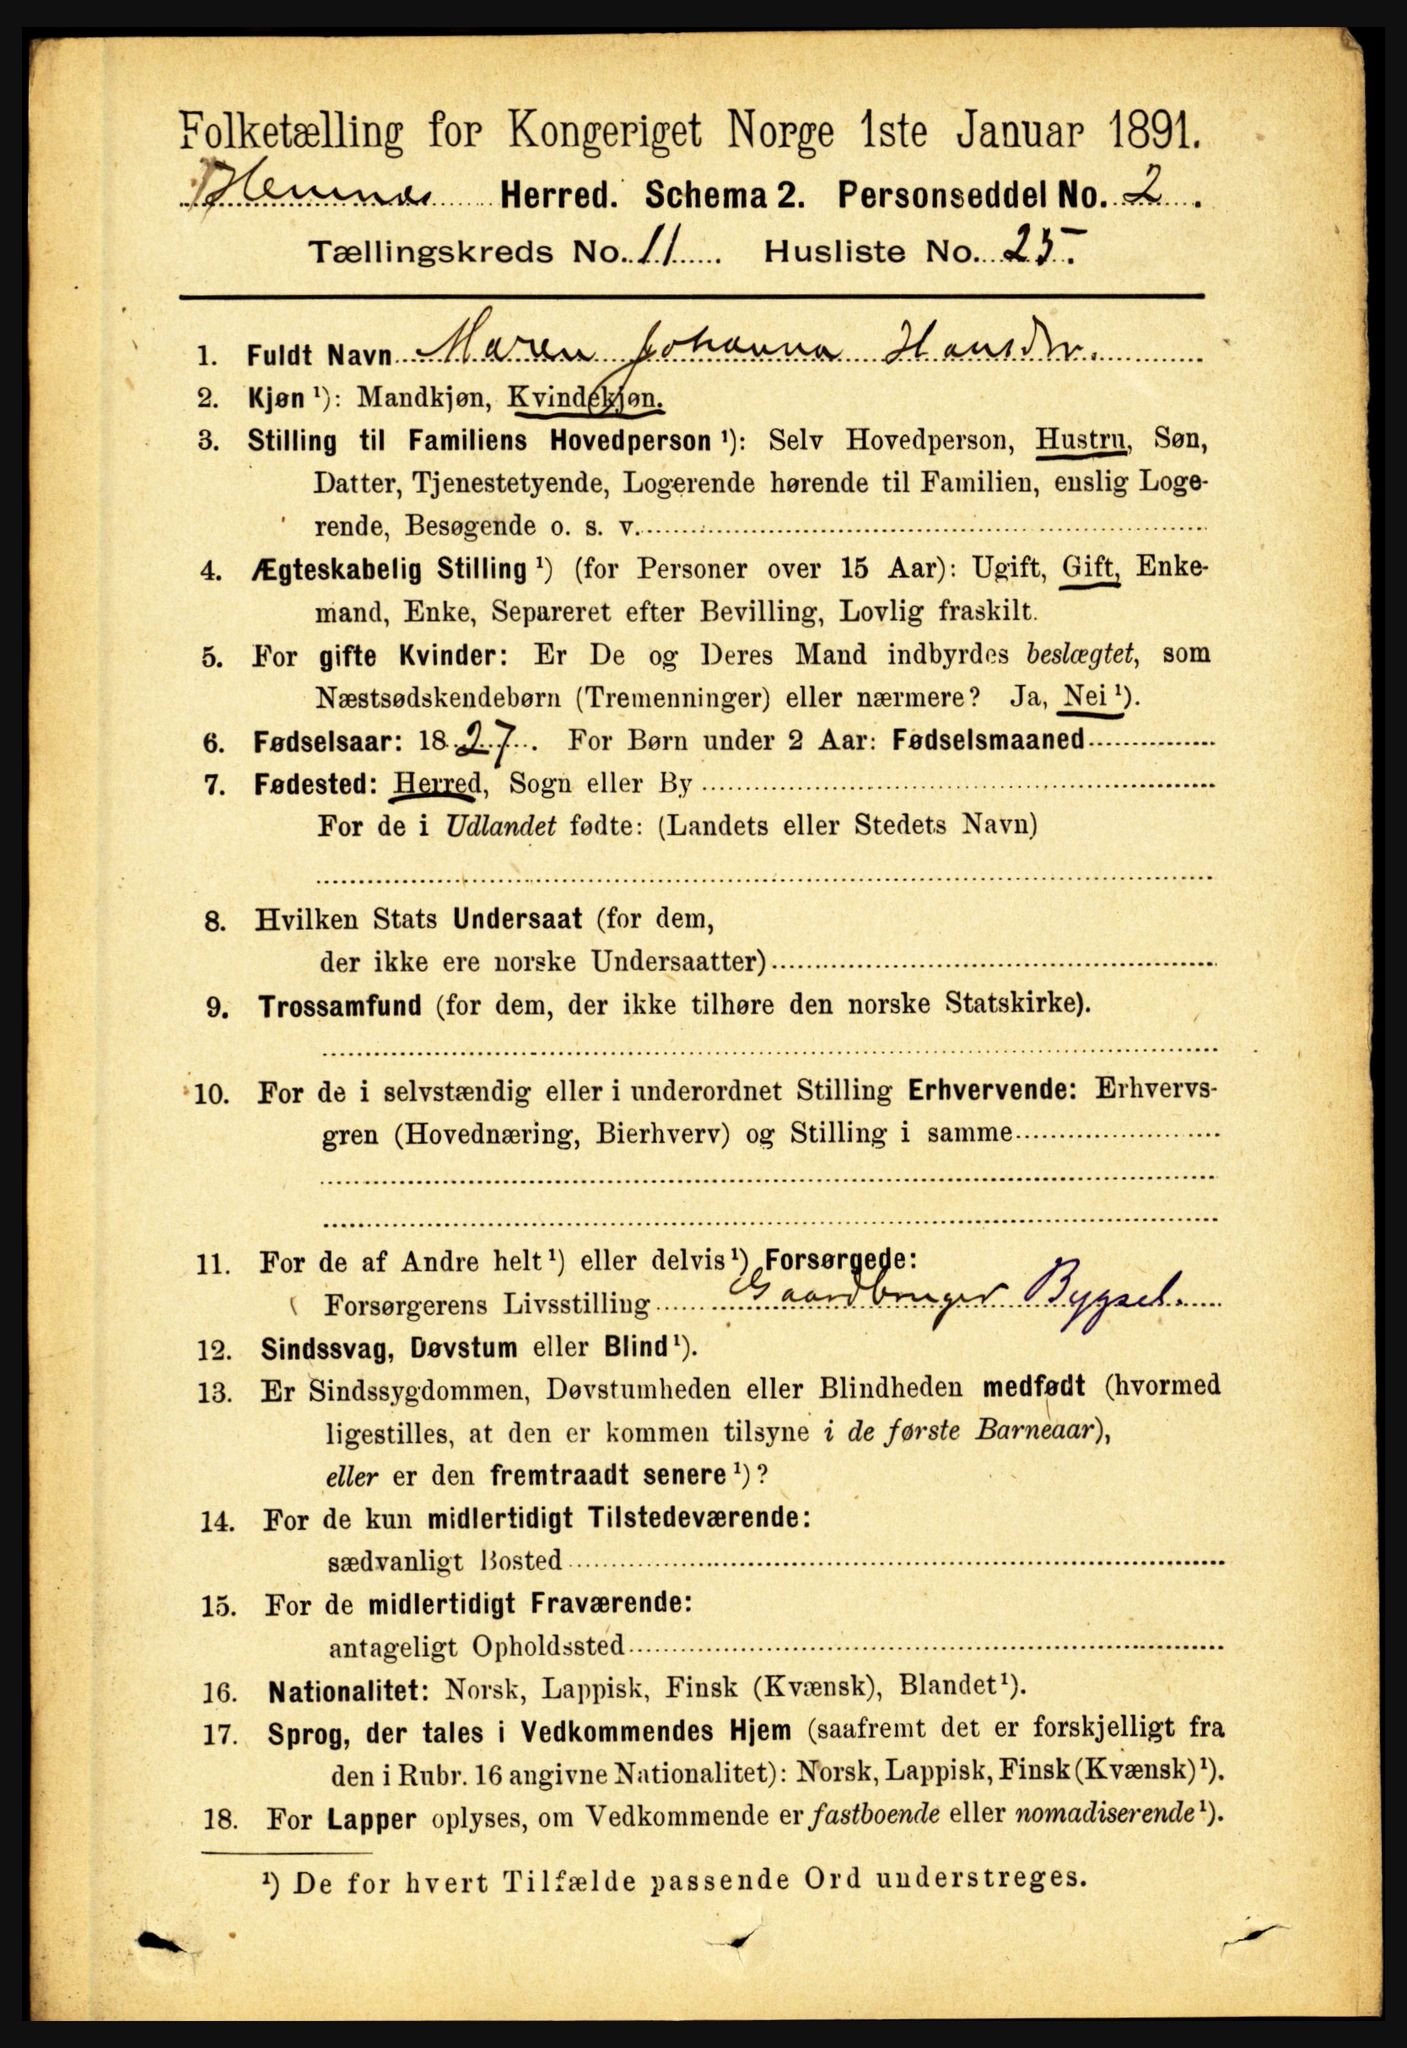 Folketælling for Kongeriget Norge 1ste Januar 1891.
Hemnæs Herred. Schema 2. Personseddel No. 2.
Tællingskreds No. 11 Husliste No. 25.
1. Fuldt Navn Maren Johanna Hansdtr.
2. Kjøn ¹): Mandkjøn, Kvindekjøn.
3. Stilling til Familiens Hovedperson ¹): Selv Hovedperson, Hustru, Søn,
Datter, Tjenestetyende, Logerende hørende til Familien, enslig Loge-
rende, Besøgende o. s. v.
4. Ægteskabelig Stilling ¹) (for Personer over 15 Aar): Ugift, Gift, Enke-
mand, Enke, Separeret efter Bevilling, Lovlig fraskilt.
5. For gifte Kvinder: Er De og Deres Mand indbyrdes beslægtet, som
Næstsødskendebørn (Tremenninger) eller nærmere? Ja, Nei ¹).
6. Fødselsaar: 1827. For Børn under 2 Aar: Fødselsmaaned
7. Fødested: Herred, Sogn eller By
For de i Udlandet fødte: (Landets eller Stedets Navn)
8. Hvilken Stats Undersaat (for dem,
der ikke ere norske Undersaatter)
9. Trossamfund (for dem, der ikke tilhøre den norske Statskirke).
10. For de i selvstændig eller i underordnet Stilling Erhvervende: Erhvervs-
gren (Hovednæring, Bierhverv) og Stilling i samme
11. For de af Andre helt ¹) eller delvis ¹) Forsørgede:
Forsørgerens Livsstilling Gaardbruger Bygsel.
12. Sindssvag, Døvstum eller Blind ¹).
13. Er Sindssygdommen, Døvstumheden eller Blindheden medfødt (hvormed
ligestilles, at den er kommen tilsyne i de første Barneaar),
eller er den fremtraadt senere ¹)?
14. For de kun midlertidigt Tilstedeværende:
sædvanligt Bosted
15. For de midlertidigt Fraværende:
antageligt Opholdssted
16. Nationalitet: Norsk, Lappisk, Finsk (Kvænsk), Blandet ¹).
17. Sprog, der tales i Vedkommendes Hjem (saafremt det er forskjelligt fra
den i Rubr. 16 angivne Nationalitet): Norsk, Lappisk, Finsk (Kvænsk) ¹).
18. For Lapper oplyses, om Vedkommende er fastboende eller nomadiserende ¹).
¹) De for hvert Tilfælde passende Ord understreges.